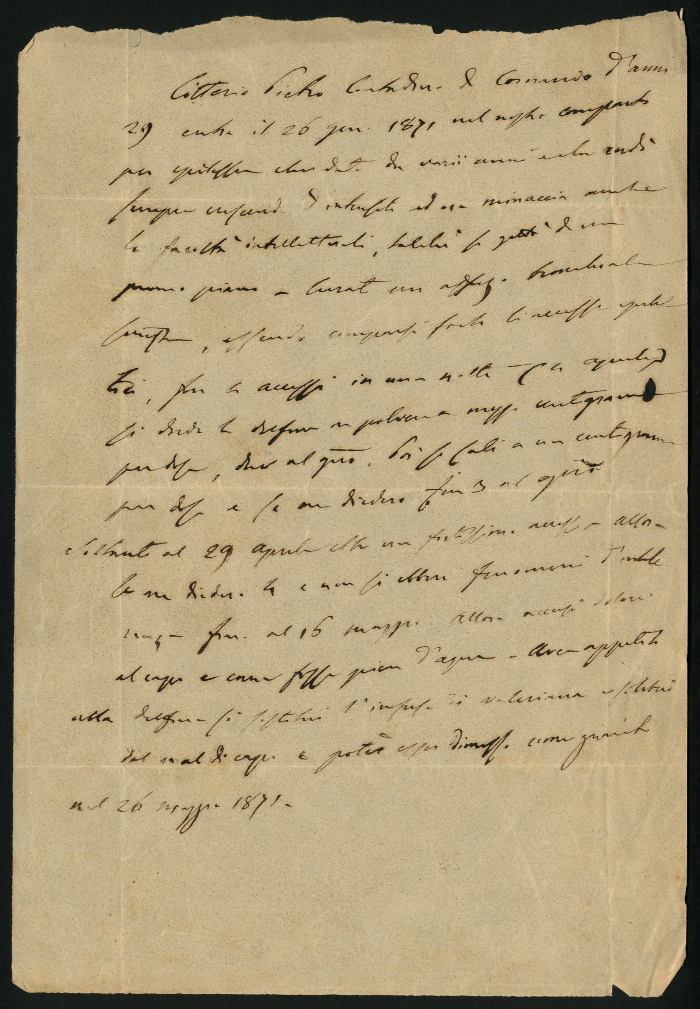 Citterio Pietro Contadino di Cornaredo d'anni
29 entra il 26 gen. 1871 nel nostro comparto
per epilessia che data da varii anni e che andò
sempre crescend. d'intensità ed ora minaccia anche
le facoltà intellettuali, talchè si gettò da un
primo piano
essendo comparsi forti accessi epilet
tici, fin 12 accessi in una notte
si diede la in polvere a mezzo centigrammo
per dose, due al giorno. Poi si salì a un centigrammo
per dose e se ne diedero fin 3 al giorno
al 29 aprile ebbe un fortissimo accesso allora
se ne diedero 4 e non si ebbero fenomeni d'intolle
ranza fino al 16 maggio. Allora accusò dolori
al capo e come fosse pien d'acqua
alla si sostituì l'infuso di valeriana e si liberò
dal mal di capo e potè esser dimesso come guarito
nel 26 maggio 1871.